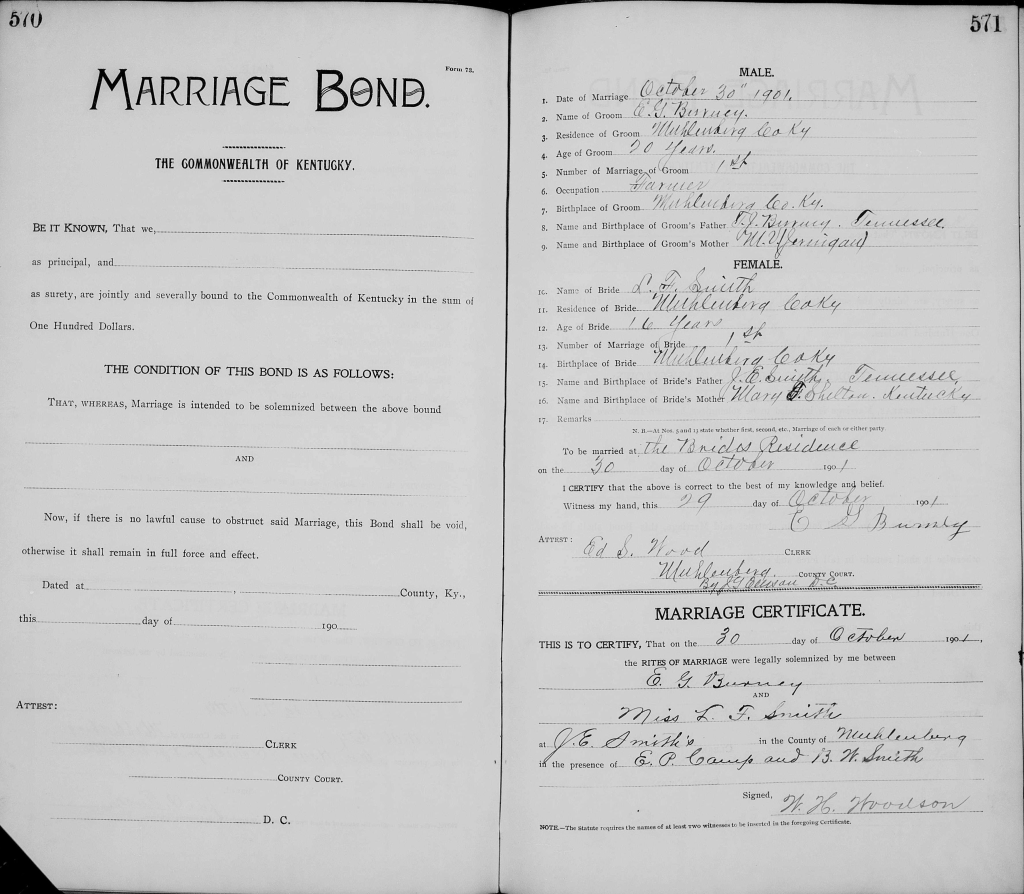 570
Form 73.
MARRIAGE BOND.
THE COMMONWEALTH OF KENTUCKY.
BE IT KNOWN, That we,
as principal, and
as surety, are jointly and severally bound to the Commonwealth of Kentucky in the sum of
One Hundred Dollars.
THE CONDITION OF THIS BOND IS AS FOLLOWS:
THAT, WHEREAS, Marriage is intended to be solemnized between the above bound
AND
Now, if there is no lawful cause to obstruct said Marriage, this Bond shall be void,
otherwise it shall remain in full force and effect.
Dated at , County, Ky.,
this day of 190
ATTEST:
CLERK
COUNTY COURT.
D. C.
571
MALE.
1. Date of Marriage October 30" 1901.
2. Name of Groom E. G. Burney.
3. Residence of Groom Muhlenberg Co Ky
4. Age of Groom 20 Years.
5. Number of Marriage of Groom 1st
6. Occupation Farmer
7. Birthplace of Groom Muhlenberg Co. Ky.
8. Name and Birthplace of Groom's Father T. J. Burney. Tennessee.
9. Name and Birthplace of Groom's Mother M. V. (Jernigan)
FEMALE.
10. Name of Bride L. F. Smith
11. Residence of Bride Muhlenberg Co Ky
12. Age of Bride 16 Years
13. Number of Marriage of Bride 1st
14. Birthplace of Bride Muhlenberg Co Ky
15. Name and Birthplace of Bride's Father J. E. Smith, Tennessee,
16. Name and Birthplace of Bride's Mother Mary Shelton. Kentucky
17. Remarks
N. B.—At Nos. 5 and 13 state whether first, second, etc., Marriage of each or either party
To be married at the Brides Residence
on the 30 day of October 1901
I CERTIFY that the above is correct to the best of my knowledge and belief.
Witness my hand, this 29 day of October 1901.
E G Burney
ATTEST:
Ed S. Wood CLERK
Muhlenberg COUNTY COURT.
By D.C.
MARRIAGE CERTIFICATE.
THIS IS TO CERTIFY, That on the 30 day of October 1901.
the RITES OF MARRIAGE were legally solemnized by me between
E. G. Burney
AND
Miss L. F. Smith
at J. E. Smith's in the County of Muhlenberg
in the presence of E. P. Camp and B. W. Smith
Signed, W. H. Woodson
NOTE.—The Statute requires the names of at least two witnesses to be inserted in the foregoing Certificate.